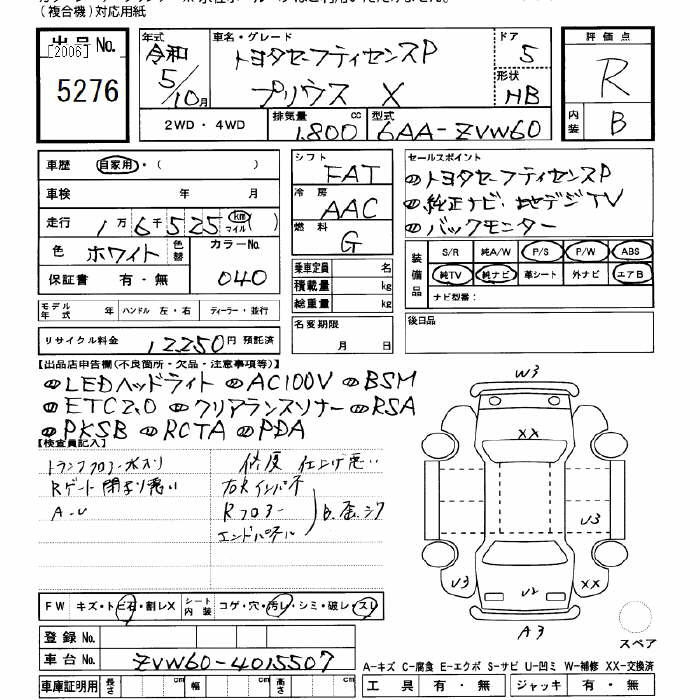 (複合機)対応用紙
出品No. [2006] 5276
年式 令和 5/10月
車名・グレード トヨタセーフティセンスP
プリウス X
ドア 5
形状 HB
評価点 R
内装 B
2WD・4WD 排気量 1800 cc 型式 6AA-ZVW60
車歴 自家用・( )
車検 年 月
走行 1万6千525 km(マイル)
色 ホワイト 色替 カラーNo. 040
保証書 有・無
モデル年式 年 ハンドル 左・右 ディーラー・並行
リサイクル料金 12250円 預託済
シフト FAT
冷房 AAC
燃料 G
乗車定員 名
積載量 kg
総重量 kg
名変期限 月 日
セールスポイント
トヨタセーフティセンスP
純正ナビ 地デジTV
バックモニター
装備品 S/R 純A/W P/S P/W ABS
純TV 純ナビ 革シート 外ナビ エアB
ナビ型番:
後日品
【出品店申告欄(不良箇所・欠品・注意事項等)】
LEDヘッドライト AC100V BSM
ETC2.0 クリアランスソナー RSA
PKSB RCTA PDA
【検査員記入】
トランクフロアー水入り
Rゲート閉まり悪い
A-U
修復 仕上げ悪い
Rフロアー
エンドパネル
FW キズ・トビ石・割レX シート内装 コゲ・穴・汚レ・シミ・破レ・スレ
登録No.
車台No. ZVW60-4015507
車庫証明用 長さ cm 幅 cm 高さ cm
W3
XX
U3
U3
U2
XX
A3
スペア
A-キズ C-腐食 E-エクボ S-サビ U-凹ミ W-補修 XX-交換済
工具 有・無 ジャッキ 有・無